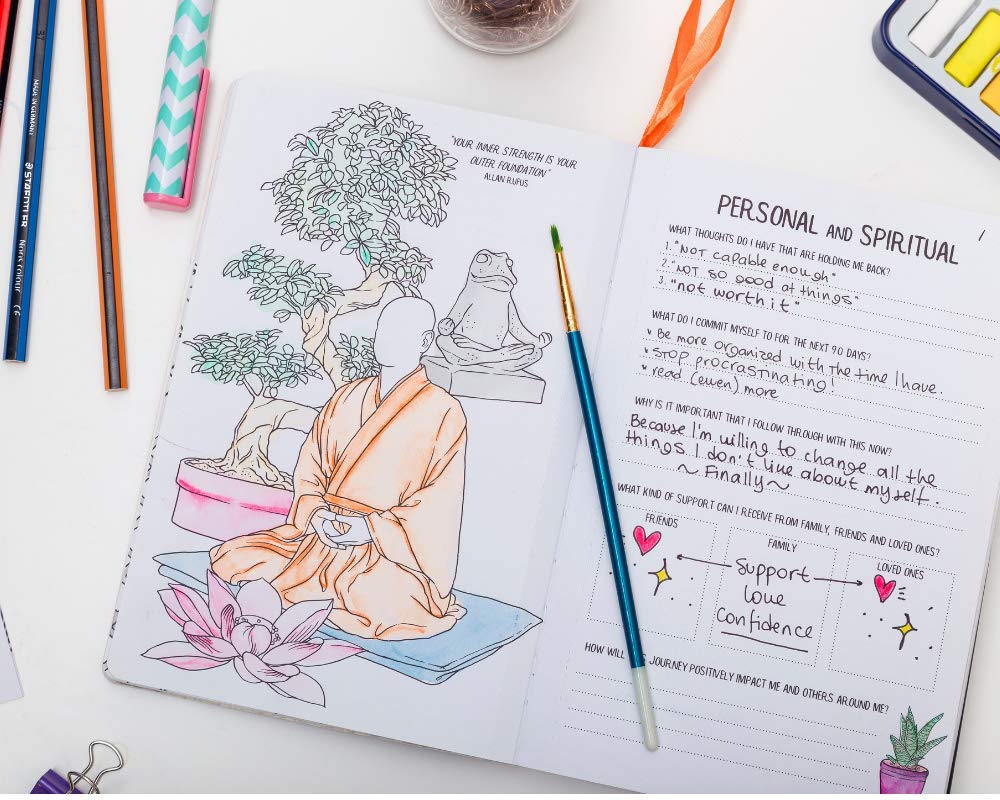 MADE IN GERMANY
STAEDTLER
"YOUR INNER STRENGTH IS YOUR
OUTER FOUNDATION"
ALLAN RUFUS
PERSONAL AND SPIRITUAL
WHAT THOUGHTS DO I HAVE THAT ARE HOLDING ME BACK?
1. "NOT capable enough"
2. "NOT so good at things"
3. "not worth it"
WHAT DO I COMMIT MYSELF TO FOR THE NEXT 90 DAYS?
Be more organized with the time I have.
STOP procrastinating!
read (even) more
WHY IS IT IMPORTANT THAT I FOLLOW THROUGH WITH THIS NOW?
Because I'm willing to change all the
things I don't like about myself.
~ Finally ~
WHAT KIND OF SUPPORT CAN I RECEIVE FROM FAMILY, FRIENDS AND LOVED ONES?
FRIENDS
FAMILY
Support
love
confidence
LOVED ONES
HOW WILL JOURNEY POSITIVELY IMPACT ME AND OTHERS AROUND ME?